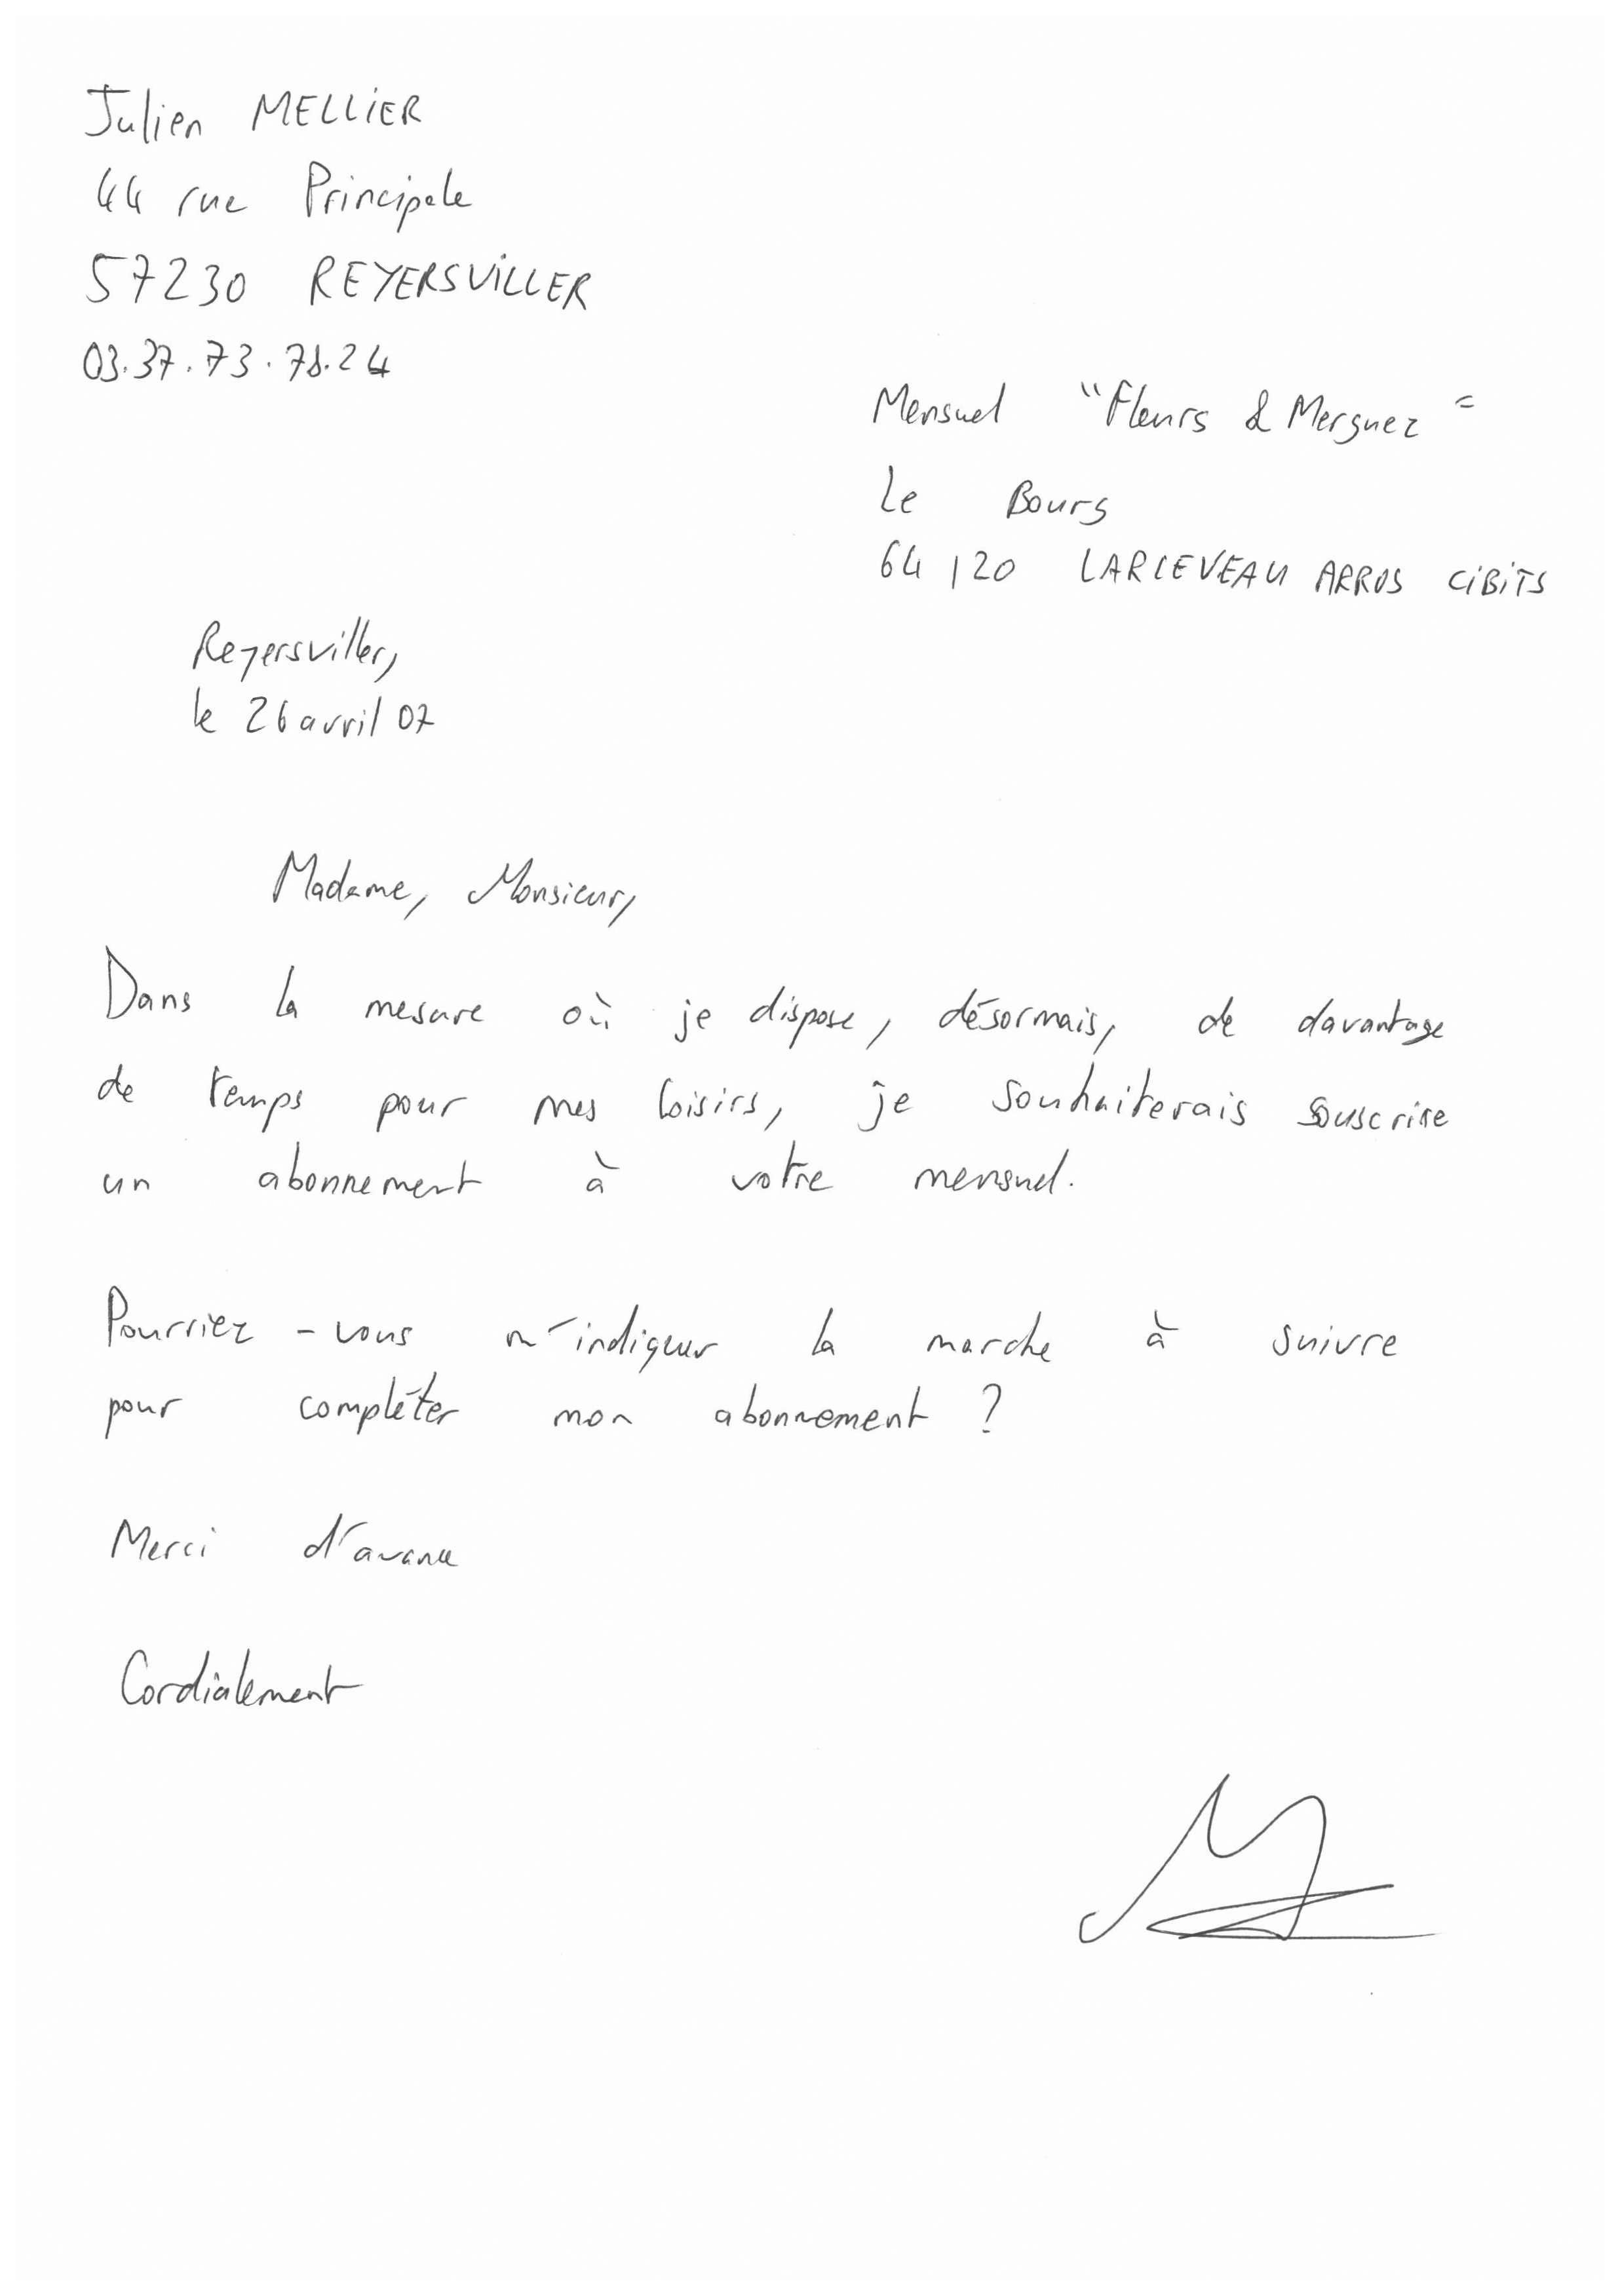 Julien MELLIER
44 rue Principale
57230 REYERSVILLER
03.37.73.78.24
Mensuel "Fleurs & Merguez"
Le Bourg
64120 LARCEVEAU ARROS CIBITS
Reyersviller,
le 26 avril 07
Madame, Monsieur,
Dans la mesure où je dispose, désormais, de davantage
de temps pour mes loisirs, je souhaiterais souscrire
un abonnement à votre mensuel.
Pourriez-vous m'indiquer la marche à suivre
pour compléter mon abonnement ?
Merci d'avance
Cordialement